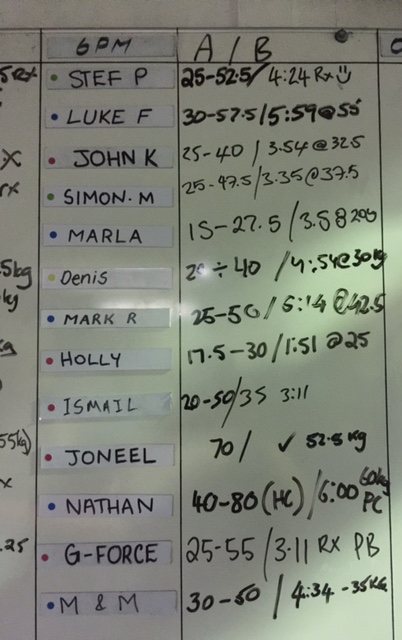 6PM A / B
5 Rx STEF P 25-52.5/ 4:24 Rx
LUKE F 30-57.5/5:59@55
X JOHN K 25-40 / 3.54 @32.5
rx SIMON.M 25-47.5/3.35@37.5
MARLA 15-27.5 /
5kg Denis ÷ 40 / 4:54@30kg
kg MARK R 25-50/ 6:14 @42.5
HOLLY 17.5-30/1:51 @25
ISMAIL 20-50/35 3:11
55kg) JONEEL 70/ ✓ 52.5kg
x NATHAN 40-80(HC) /6:00 60kg
PC
.25 G-FORCE 25-55 /3.11 RX PB
M & M 30-50 / 4:34 -35KG